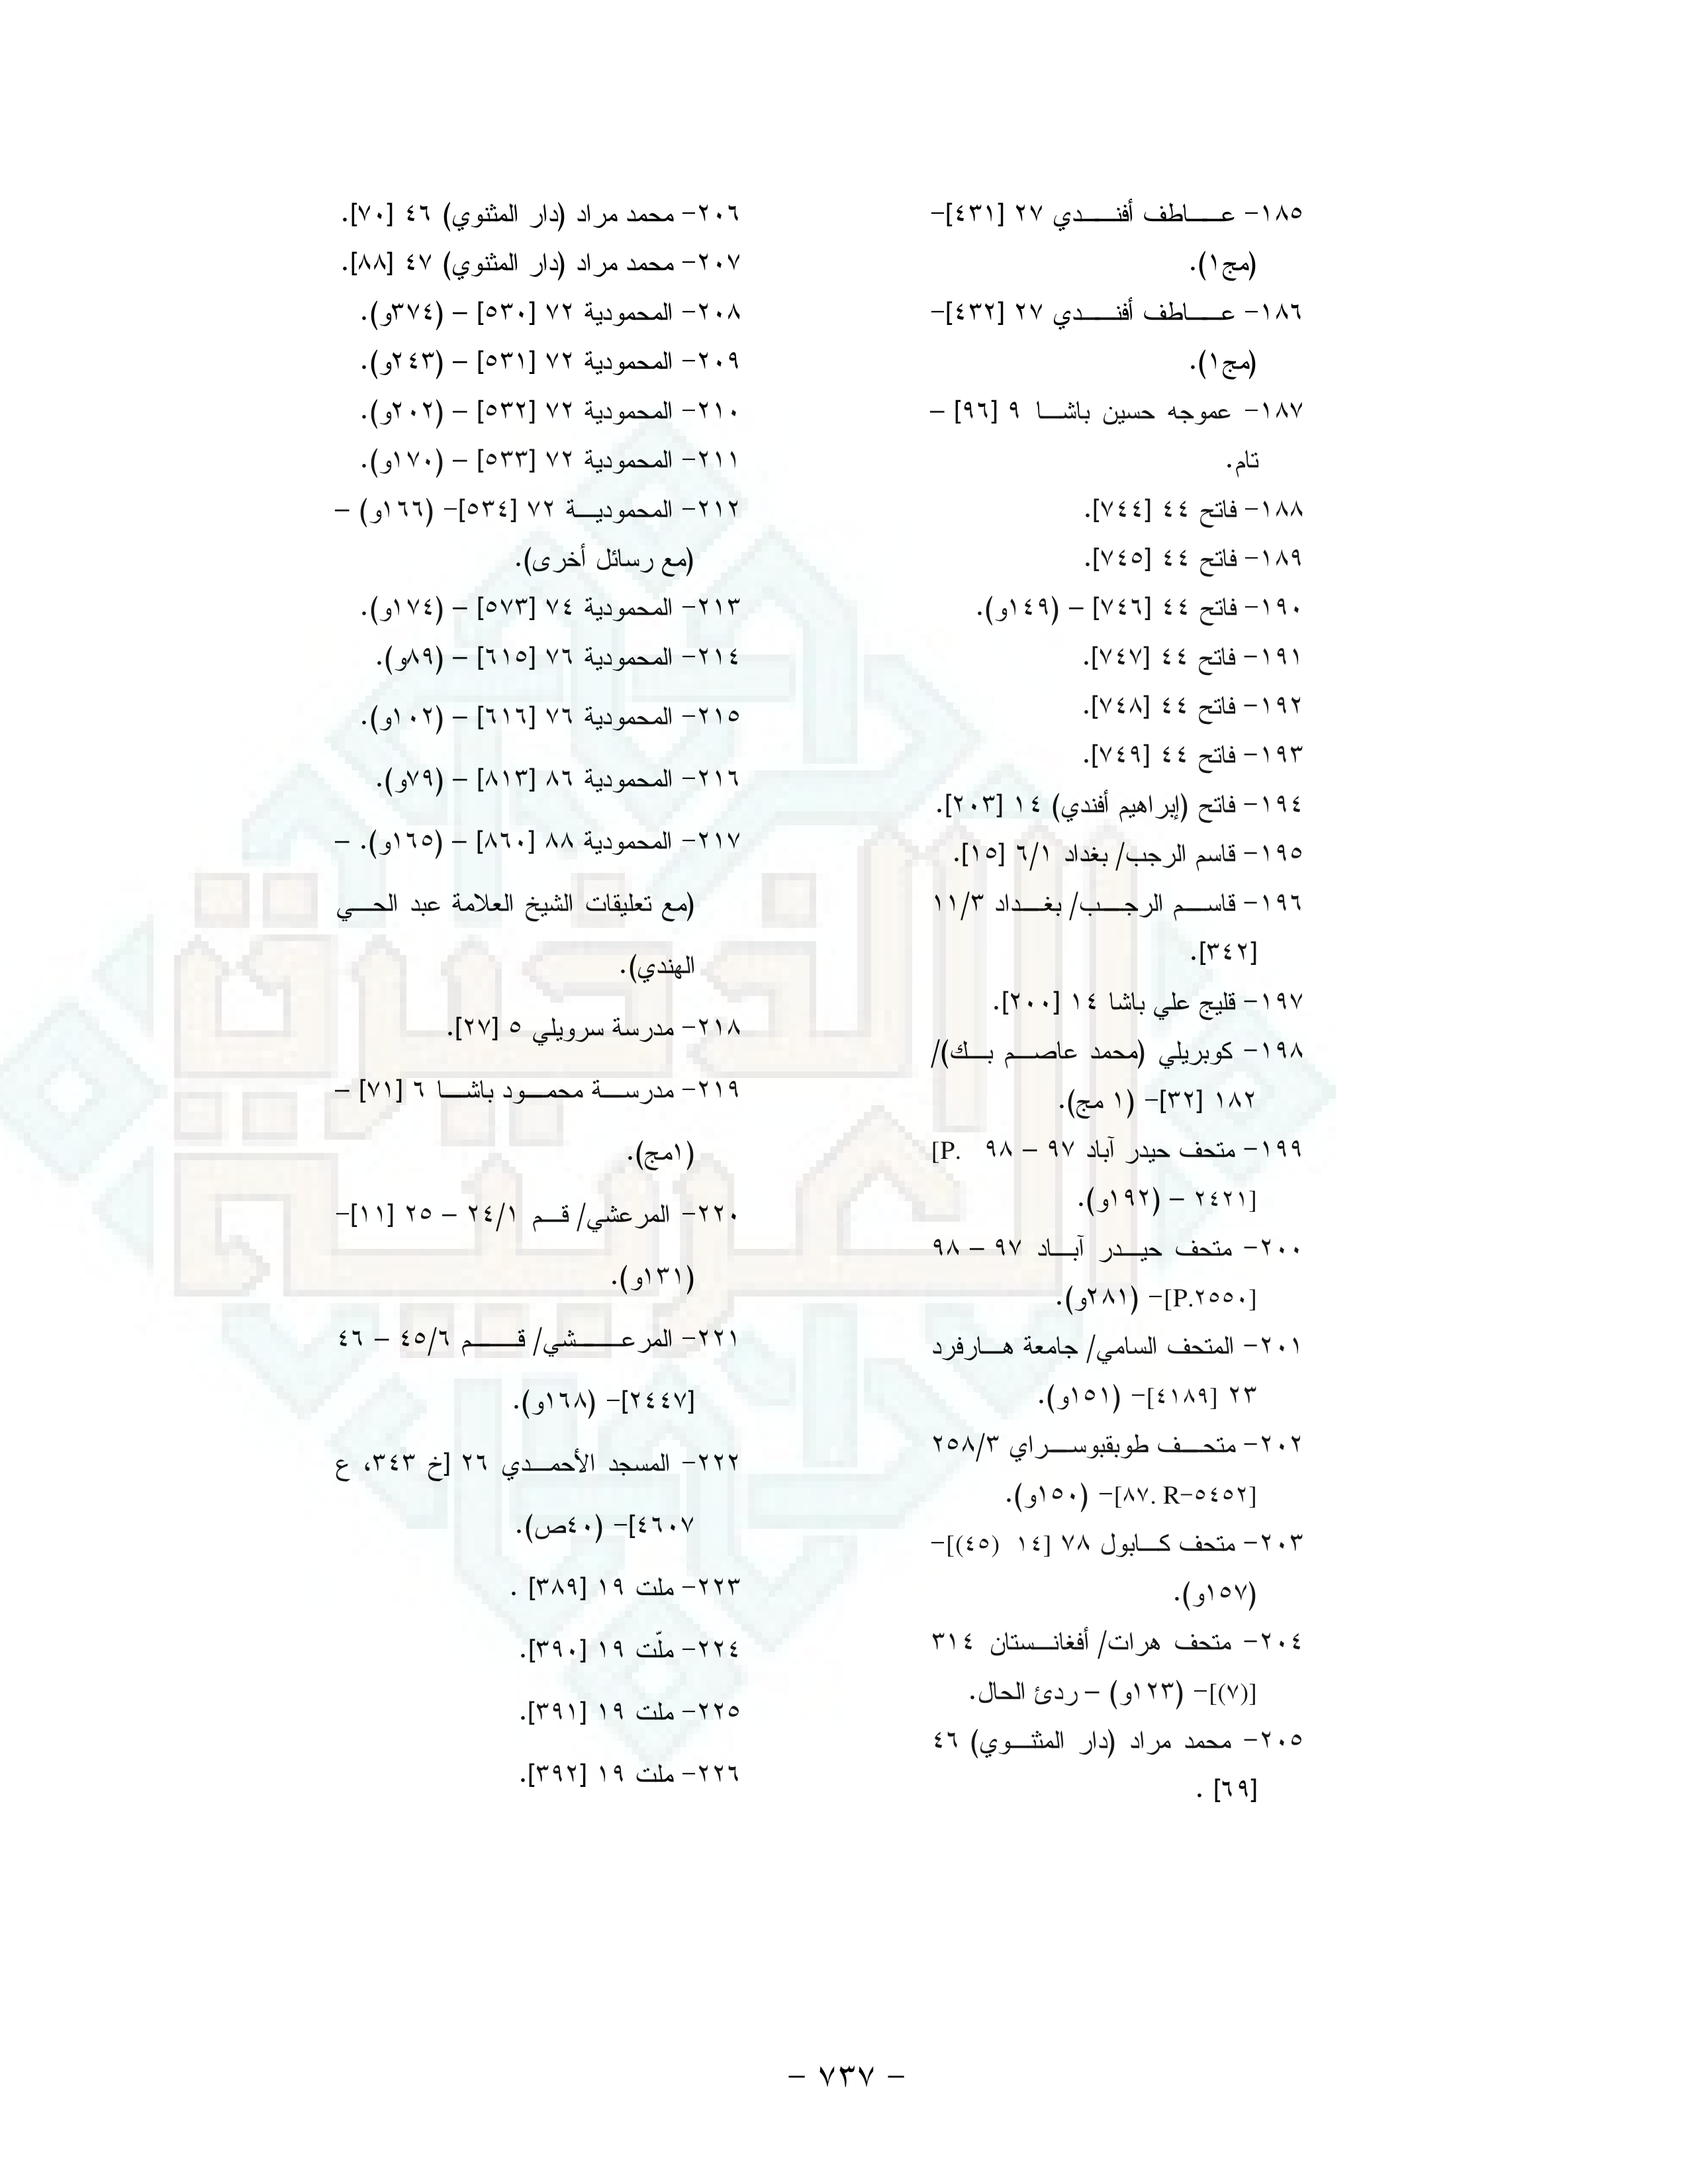 ١٨٥- عاطف أفندي ٢٧ [٤٣١]-
(مج١).
١٨٦- عاطف أفندي ٢٧ [٤٣٢]-
(مج١).
١٨٧- عموجه حسين باشا ٩ [٩٦] –
تام.
١٨٨- فاتح ٤٤ [٧٤٤].
١٨٩- فاتح ٤٤ [٧٤٥].
١٩٠- فاتح ٤٤ [٧٤٦] – (١٤٩و).
١٩١- فاتح ٤٤ [٧٤٧].
١٩٢- فاتح ٤٤ [٧٤٨].
١٩٣- فاتح ٤٤ [٧٤٩].
١٩٤- فاتح (إبراهيم أفندي) ١٤ [٢٠٣].
١٩٥- قاسم الرجب/ بغداد ٦/١ [١٥].
١٩٦- قاسم الرجب/ بغداد ١١/٣
[٣٤٢].
١٩٧- قليج علي باشا ١٤ [٢٠٠].
١٩٨- كوبريلي (محمد عاصم بك)/
١٨٢ [٣٢]- (١ مج).
١٩٩- متحف حيدر آباد ٩٧ – ٩٨ [P.
٢٤٢١] – (١٩٢و).
٢٠٠- متحف حيدر آباد ٩٧ – ٩٨
[P.٢٥٥٠]- (٢٨١و).
٢٠١- المتحف السامي/ جامعة هارفرد
٢٣ [٤١٨٩]- (١٥١و).
٢٠٢- متحف طوبقبوسراي ٢٥٨/٣
[٨٧. R-٥٤٥٢]- (١٥٠و).
٢٠٣- متحف كابول ٧٨ [١٤ (٤٥)]-
(١٥٧و).
٢٠٤- متحف هرات/ أفغانستان ٣١٤
[(٧)]- (١٢٣و) – ردئ الحال.
٢٠٥- محمد مراد (دار المثنوي) ٤٦
[٦٩] .
٢٠٦- محمد مراد (دار المثنوي) ٤٦ [٧٠].
٢٠٧- محمد مراد (دار المثنوي) ٤٧ [٨٨].
٢٠٨- المحمودية ٧٢ [٥٣٠] – (٣٧٤و).
٢٠٩- المحمودية ٧٢ [٥٣١] – (٢٤٣و).
٢١٠- المحمودية ٧٢ [٥٣٢] – (٢٠٢و).
٢١١- المحمودية ٧٢ [٥٣٣] – (١٧٠و).
٢١٢- المحمودية ٧٢ [٥٣٤]- (١٦٦و) –
(مع رسائل أخرى).
٢١٣- المحمودية ٧٤ [٥٧٣] – (١٧٤و).
٢١٤- المحمودية ٧٦ [٦١٥] – (٨٩و).
٢١٥- المحمودية ٧٦ [٦١٦] – (١٠٢و).
٢١٦- المحمودية ٨٦ [٨١٣] – (٧٩و).
٢١٧- المحمودية ٨٨ [٨٦٠] – (١٦٥و). –
(مع تعليقات الشيخ العلامة عبد الحي
الهندي).
٢١٨- مدرسة سرويلي ٥ [٢٧].
٢١٩- مدرسة محمود باشا ٦ [٧١] –
(١مج).
٢٢٠- المرعشي/ قم ٢٤/١ – ٢٥ [١١]-
(١٣١و).
٢٢١- المرعشي/ قم ٤٥/٦ – ٤٦
[٢٤٤٧]- (١٦٨و).
٢٢٢- المسجد الأحمدي ٢٦ [خ ٣٤٣، ع
٤٦٠٧]- (٤٠ص).
٢٢٣- ملت ١٩ [٣٨٩] .
٢٢٤- ملّت ١٩ [٣٩٠].
٢٢٥- ملت ١٩ [٣٩١].
٢٢٦- ملت ١٩ [٣٩٢].
الذخيرة
العربية
– ٧٣٧ –